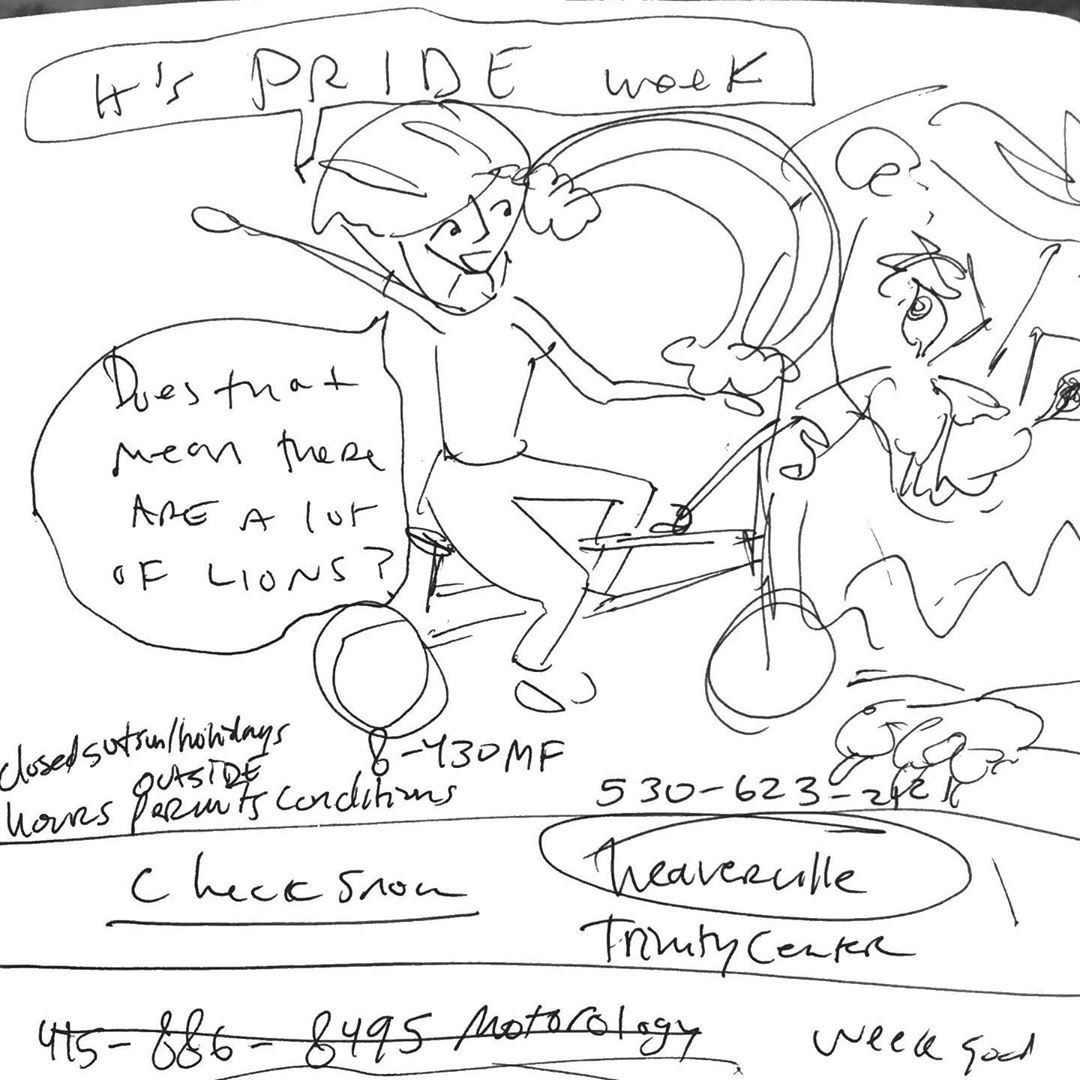 It's PRIDE week
Does that
mean there
ARE A lot
OF LIONS?
closed sat sun/holidays
8-430 MF
OUTSIDE
hours Permits Conditions
530-623-2121
Check Snow
Weaverville
Trinity Center
415-886-8495 Motorology
week good